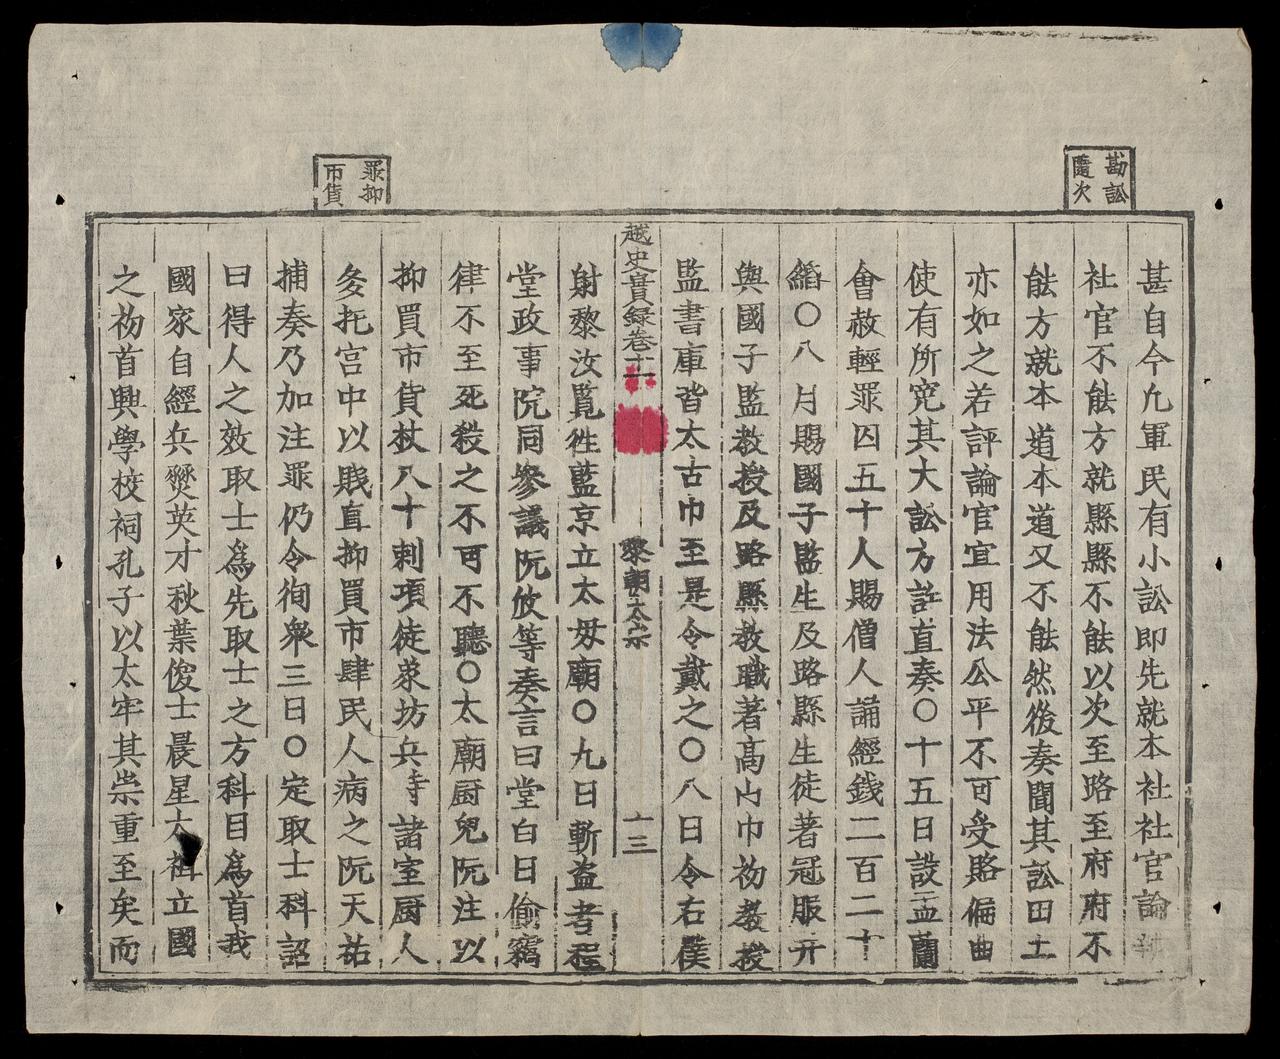 勘訟
隨次
甚自今凢軍民有小訟即先就本社社官論
社官不能方就縣縣不能以次至路至府府不
能方就本道本道又不能然後奏聞其訟田土
亦如之若評論官宜用法公平不可受賂偏曲
使有所寃其大訟方許直奏〇十五日設盂蘭
會赦輕罪囚五十人賜僧人誦經錢二百二十
緡〇八月賜國子監生及路縣生徒著冠服幷
與國子監教授及路縣教職著高山巾初教授
監書庫皆太古巾至是令戴之〇八日令右僕
越史實録卷十一
黎朝太宗
十三
射黎汝覧徃藍京立太母廟〇九日斬盗者程
堂政事院同參議阮攸等奏言曰堂白日偷竊
律不至死殺之不可不聽〇太廟厨兒阮注以
罪抑
市貨
抑買市貨杖八十刺項徒裘坊兵寺諸室厨人
多托宫中以賎直抑買市肆民人病之阮天祐
捕奏乃加注罪仍令徇衆三日〇定取士科詔
曰得人之效取士爲先取士之方科目爲首我
國家自經兵燹英才秋葉俊士晨星太祖立國
之初首興學校祠孔子以太牢其崇重至矣而